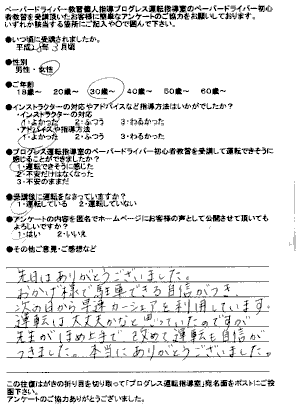 ペーパードライバー教習個人指導プログレス運転指導室のペーパードライバー初心
者教習を受講頂いたお客様に簡単なアンケートのご協力をお願いしております。
いずれか該当する箇所にご記入や〇で囲んで下さい。
●いつ頃に受講されましたか。
平成28年3月頃
●性別
男性・女性
●ご年齢
18歳～ 20歳～ 30歳～ 40歳～ 50歳～ 60歳～
●インストラクターの対応やアドバイスなど指導方法はいかがでしたか?
・インストラクターの対応
1・よかった 2・ふつう 3・わるかった
・アドバイスや指導方法
1・よかった 2・ふつう 3・わるかった
●プログレス運転指導室のペーパードライバー初心者教習を受講して運転できそうに
感じることができましたか?
1・運転できそうに感じた
2・不安だけはなくなった
3・不安のままだ
●受講後に運転をなさっていますか?
1・運転している 2・運転していない
●アンケートの内容を匿名でホームページにお客様の声として公開させて頂いても
よろしいですか?
1・はい 2・いいえ
●その他ご意見・ご感想など
先日はありがとうございました。
おかげ様で駐車できる自信がつき、
次の日から早速カーシェアを利用しています。
運転は大丈夫かなと思っていたのですが
先生がほめ上手で改めて運転も自信が
つきました。本当にありがとうございました。
この往復はがきの折り目を切り取って「プログレス運転指導室」宛名面をポストにご投
函下さい。
アンケートのご協力ありがとうございました。